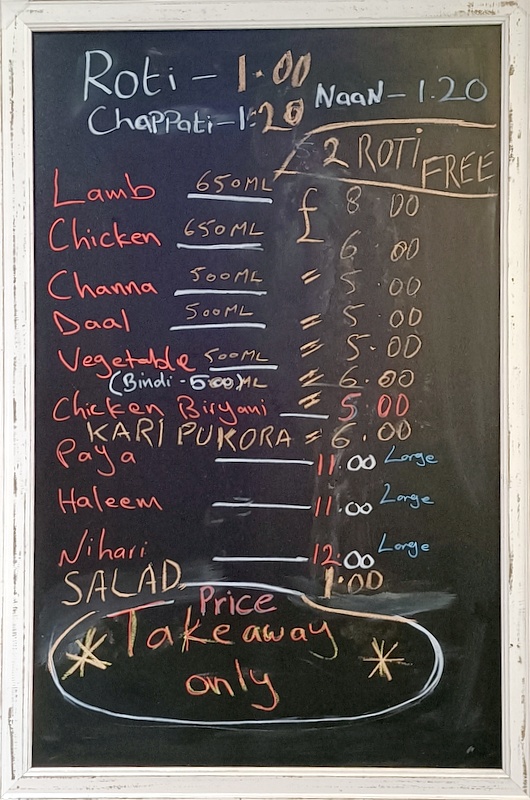 Roti - 1.00
Chappati - 1.20 Naan - 1.20
2 ROTI FREE
Lamb 650ML £ 8.00
Chicken 650ML 6.00
Channa 500ML " 5.00
Daal 500ML " 5.00
Vegetable 500ML " 5.00
(Bindi - 500)ML " 6.00
Chicken Biryani " 5.00
KARI PUKORA = 6.00
Paya 11.00 Large
Haleem 11.00 Large
Nihari 12.00 Large
SALAD 1.00
Price
* Takeaway *
only